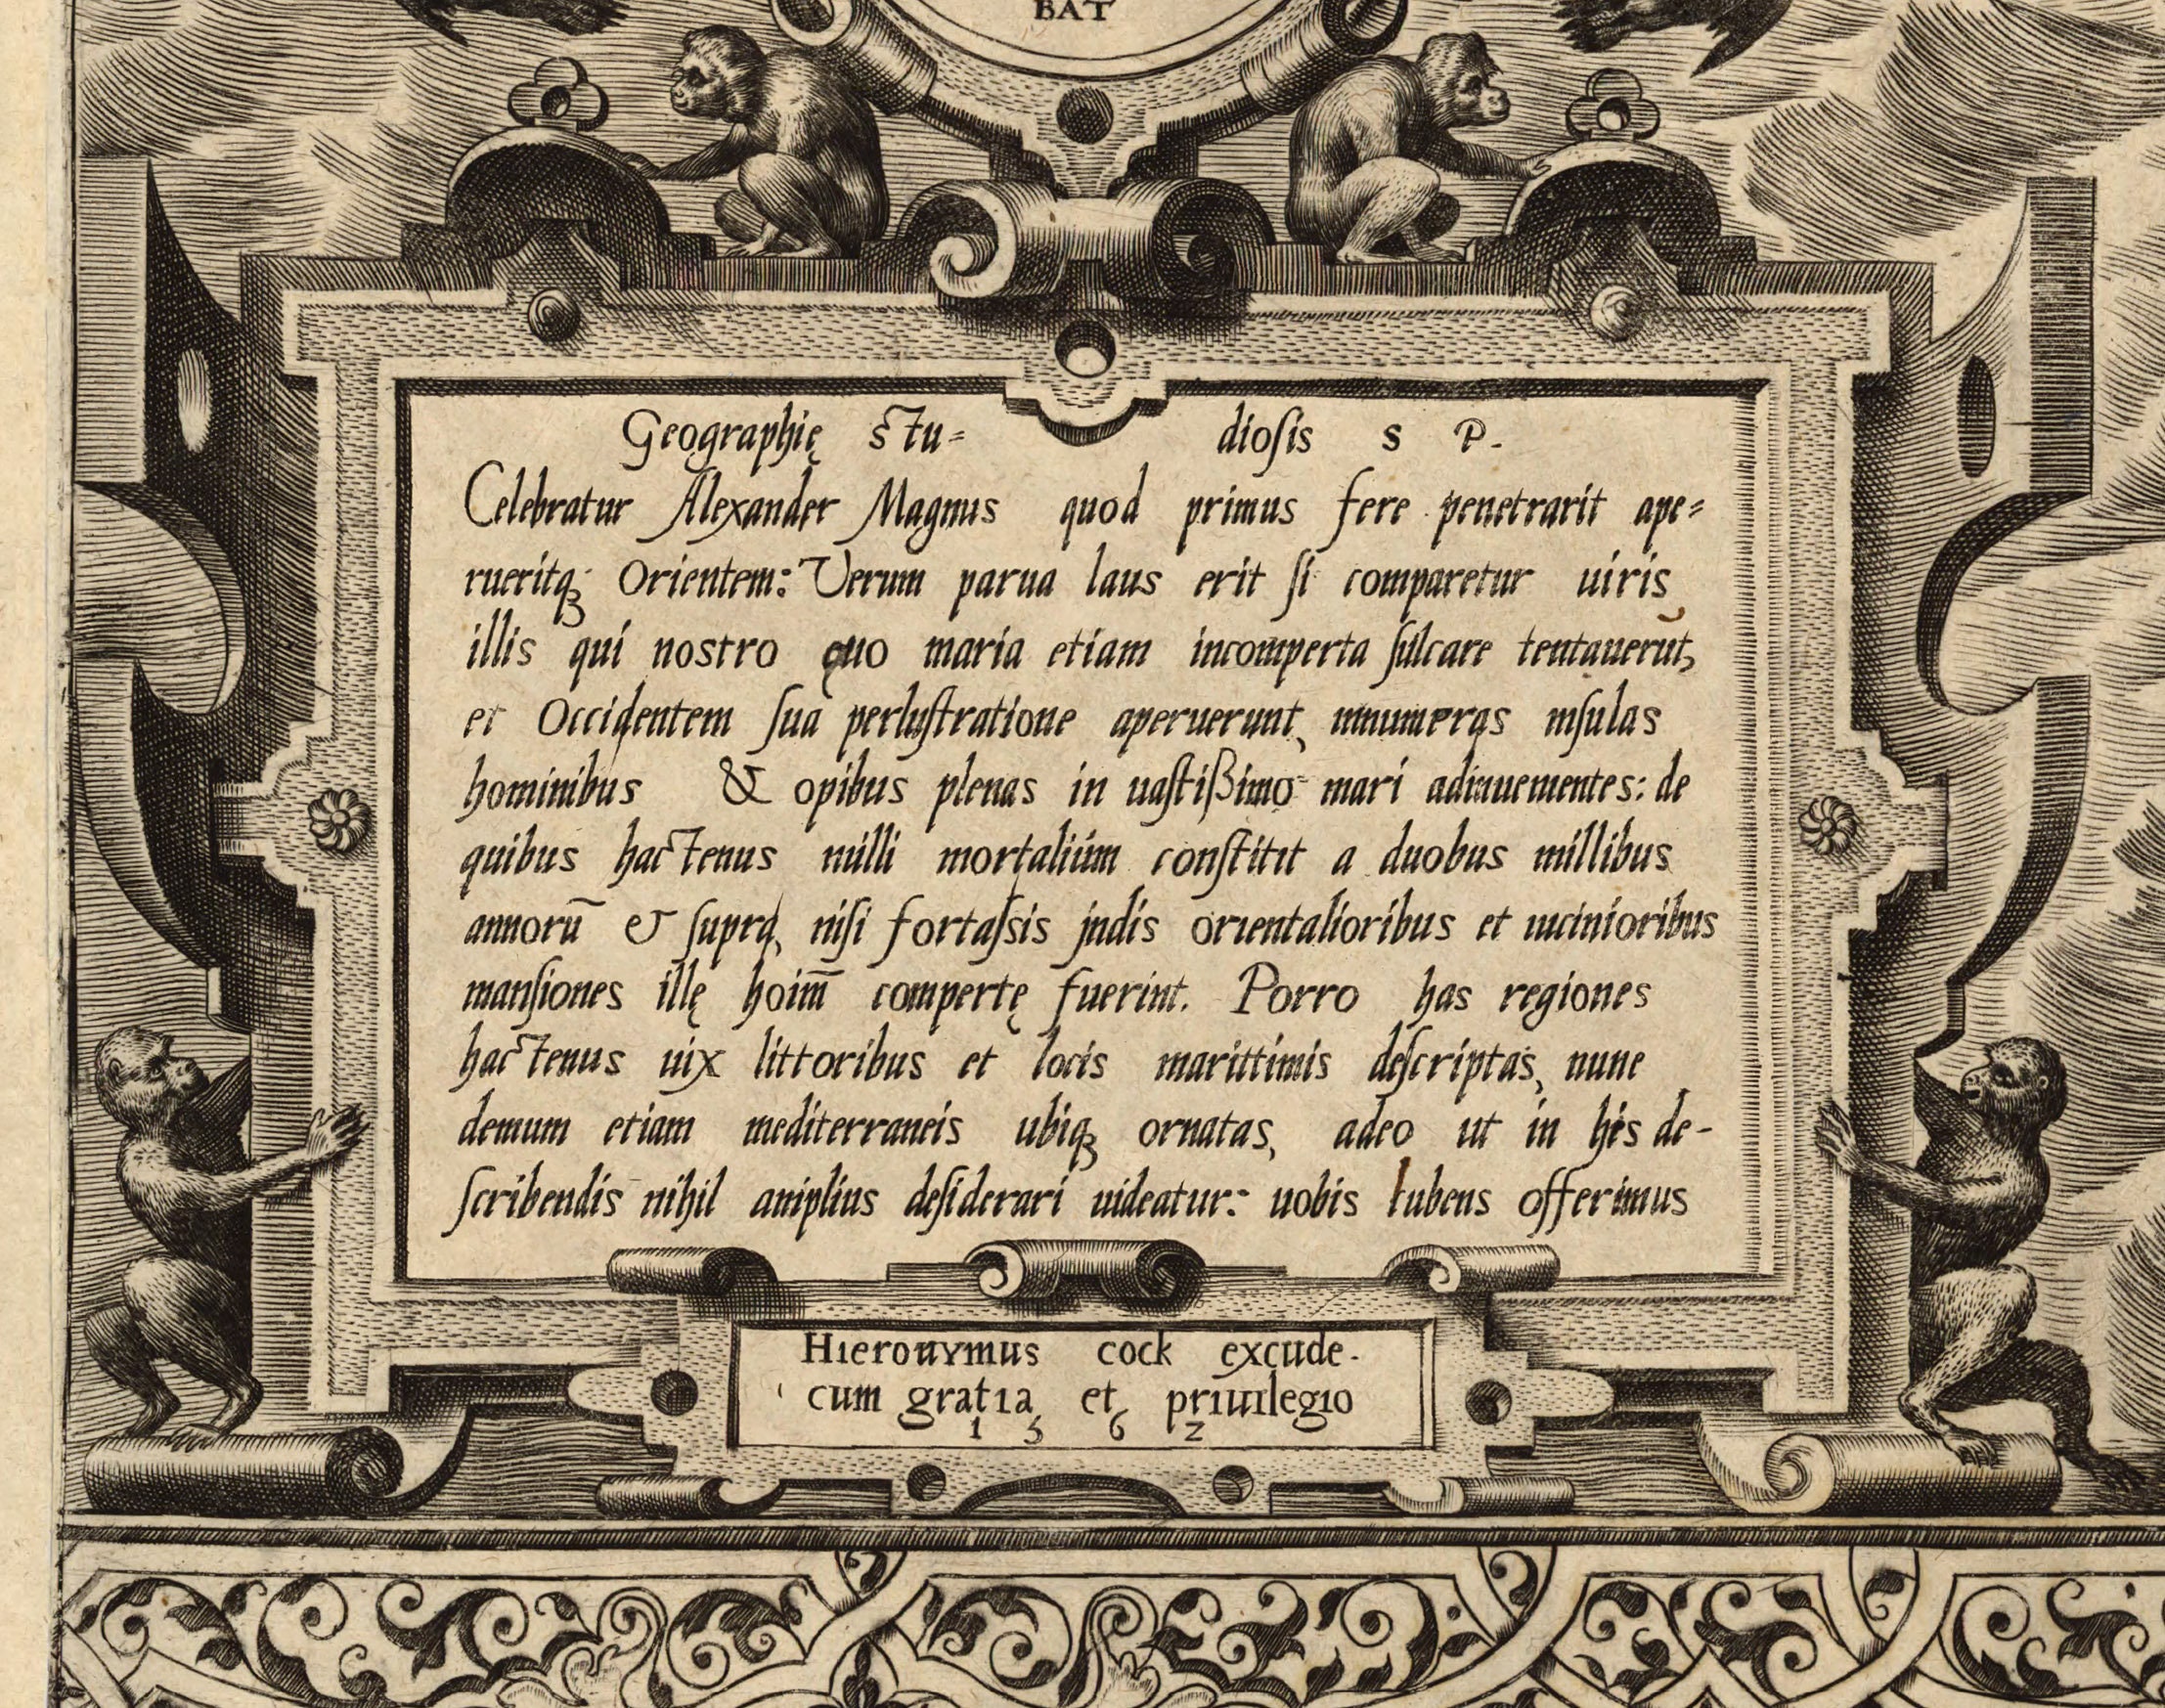 BAT
Geographię stu= diosis s P.
Celebratur Alexander Magnus quod primus fere penetrarit ape=
rueritqꝫ Orientem: Verum parua laus erit si comparetur uiris
illis qui nostro ęuo maria etiam incomperta sulcare tentauerūt,
et Occidentem sua perlustratione aperuerunt, innumeras insulas
hominibus & opibus plenas in uastißimo mari adinuenientes: de
quibus hactenus nulli mortalium constitit a duobus millibus
annorū & supra, nisi fortassis jndis orientalioribus et uicinioribus
mansiones illę hoim̄ compertę fuerint. Porro has regiones
hactenus uix littoribus et locis marittimis descriptas, nunc
demum etiam mediterraneis ubiqꝫ ornatas, adeo ut in hís de-
scribendis nihil amplius desiderari uideatur: uobis lubens offerimus
Hieronymus cock excude.
cum gratia et priuilegio
1562